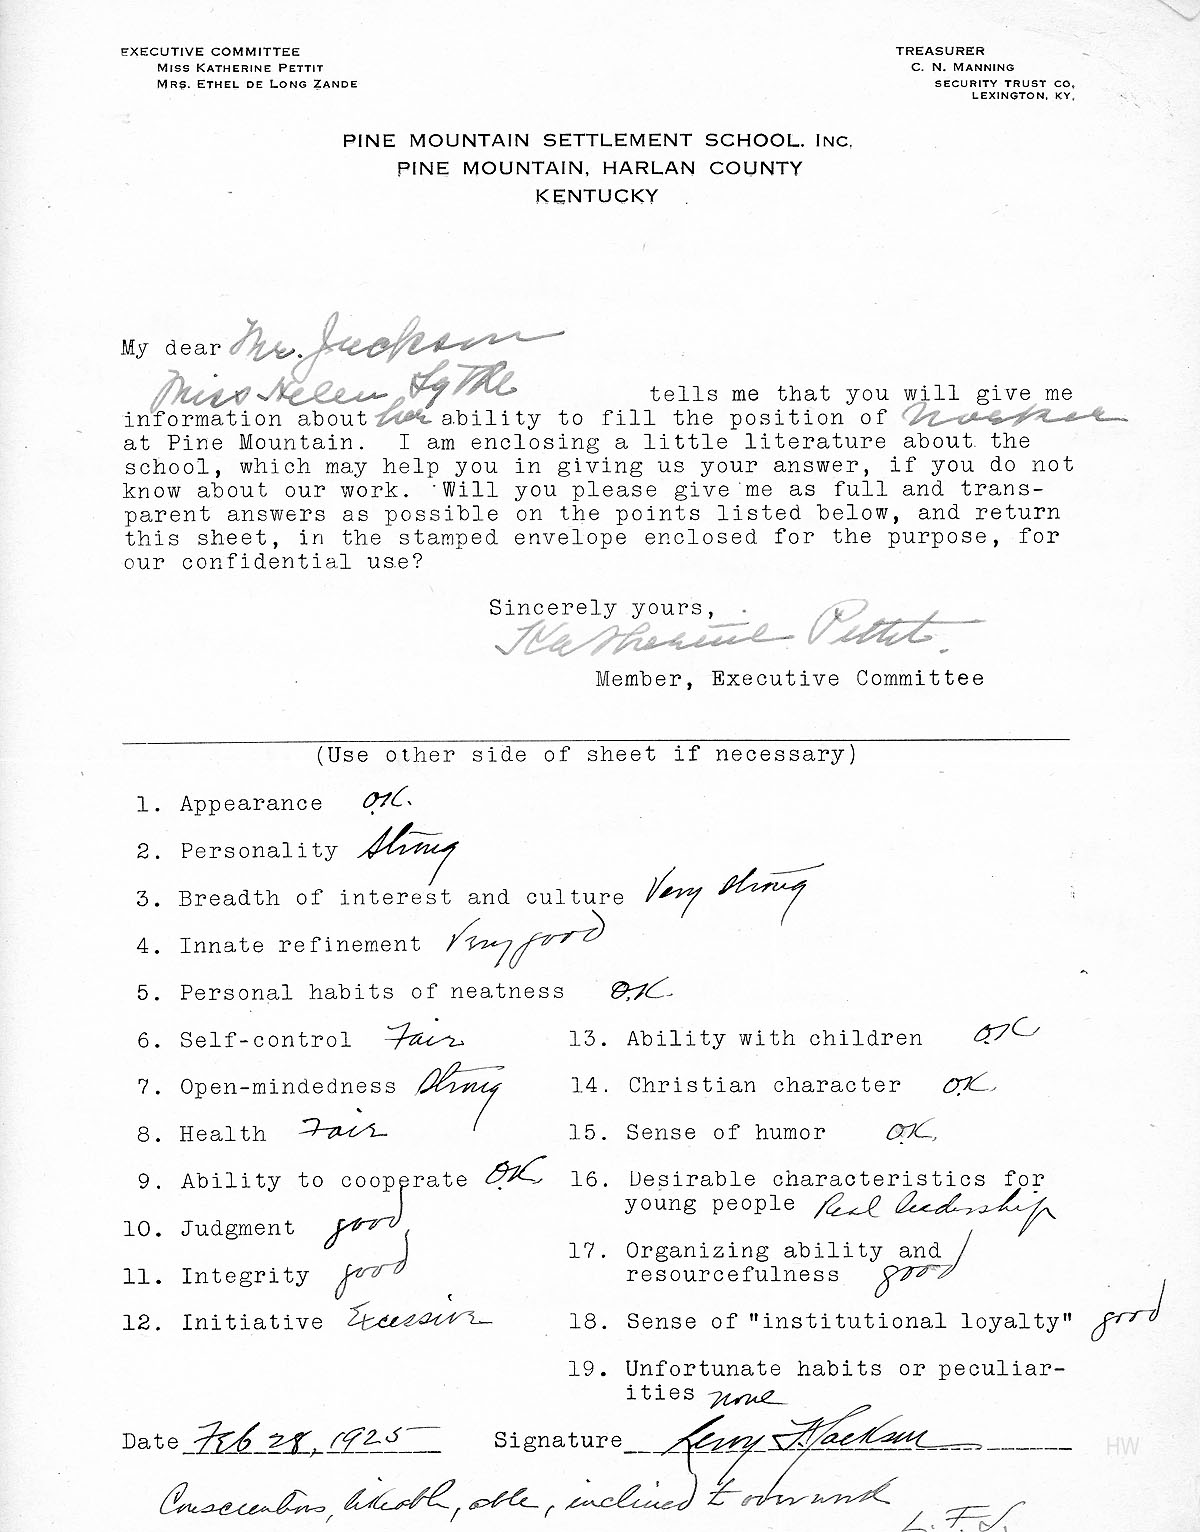 EXECUTIVE COMMITTEE
MISS KATHERINE PETTIT
MRS. ETHEL DE LONG ZANDE
TREASURER
C. N. MANNING
SECURITY TRUST CO.
LEXINGTON, KY.
PINE MOUNTAIN SETTLEMENT SCHOOL. INC.
PINE MOUNTAIN, HARLAN COUNTY
KENTUCKY
My dear Mr. Jackson
Miss Helen tells me that you will give me
information about her ability to fill the position of Worker
at Pine Mountain. I am enclosing a little literature about the
school, which may help you in giving us your answer, if you do not
know about our work. Will you please give me as full and trans-
parent answers as possible on the points listed below, and return
this sheet, in the stamped envelope enclosed for the purpose, for
our confidential use?
Sincerely yours,
Katherine Pettit.
Member, Executive Committee
(Use other side of sheet if necessary)
1. Appearance O.K.
2. Personality Strong
3. Breadth of interest and culture Very strong
4. Innate refinement Very good
5. Personal habits of neatness O.K.
6. Self-control Fair
7. Open-mindedness Strong
8. Health Fair
9. Ability to cooperate O.K.
10. Judgment good
11. Integrity good
12. Initiative Excessive
13. Ability with children O.K
14. Christian character O.K.
15. Sense of humor O.K.
16. Desirable characteristics for
young people Real leadership
17. Organizing ability and
resourcefulness good
18. Sense of "institutional loyalty" good
19. Unfortunate habits or peculiar-
ities none
Date Feb 28, 1925 Signature Leroy F. Jackson
Conscientious, likeable, able, inclined to overwork
L. F. J.
HW